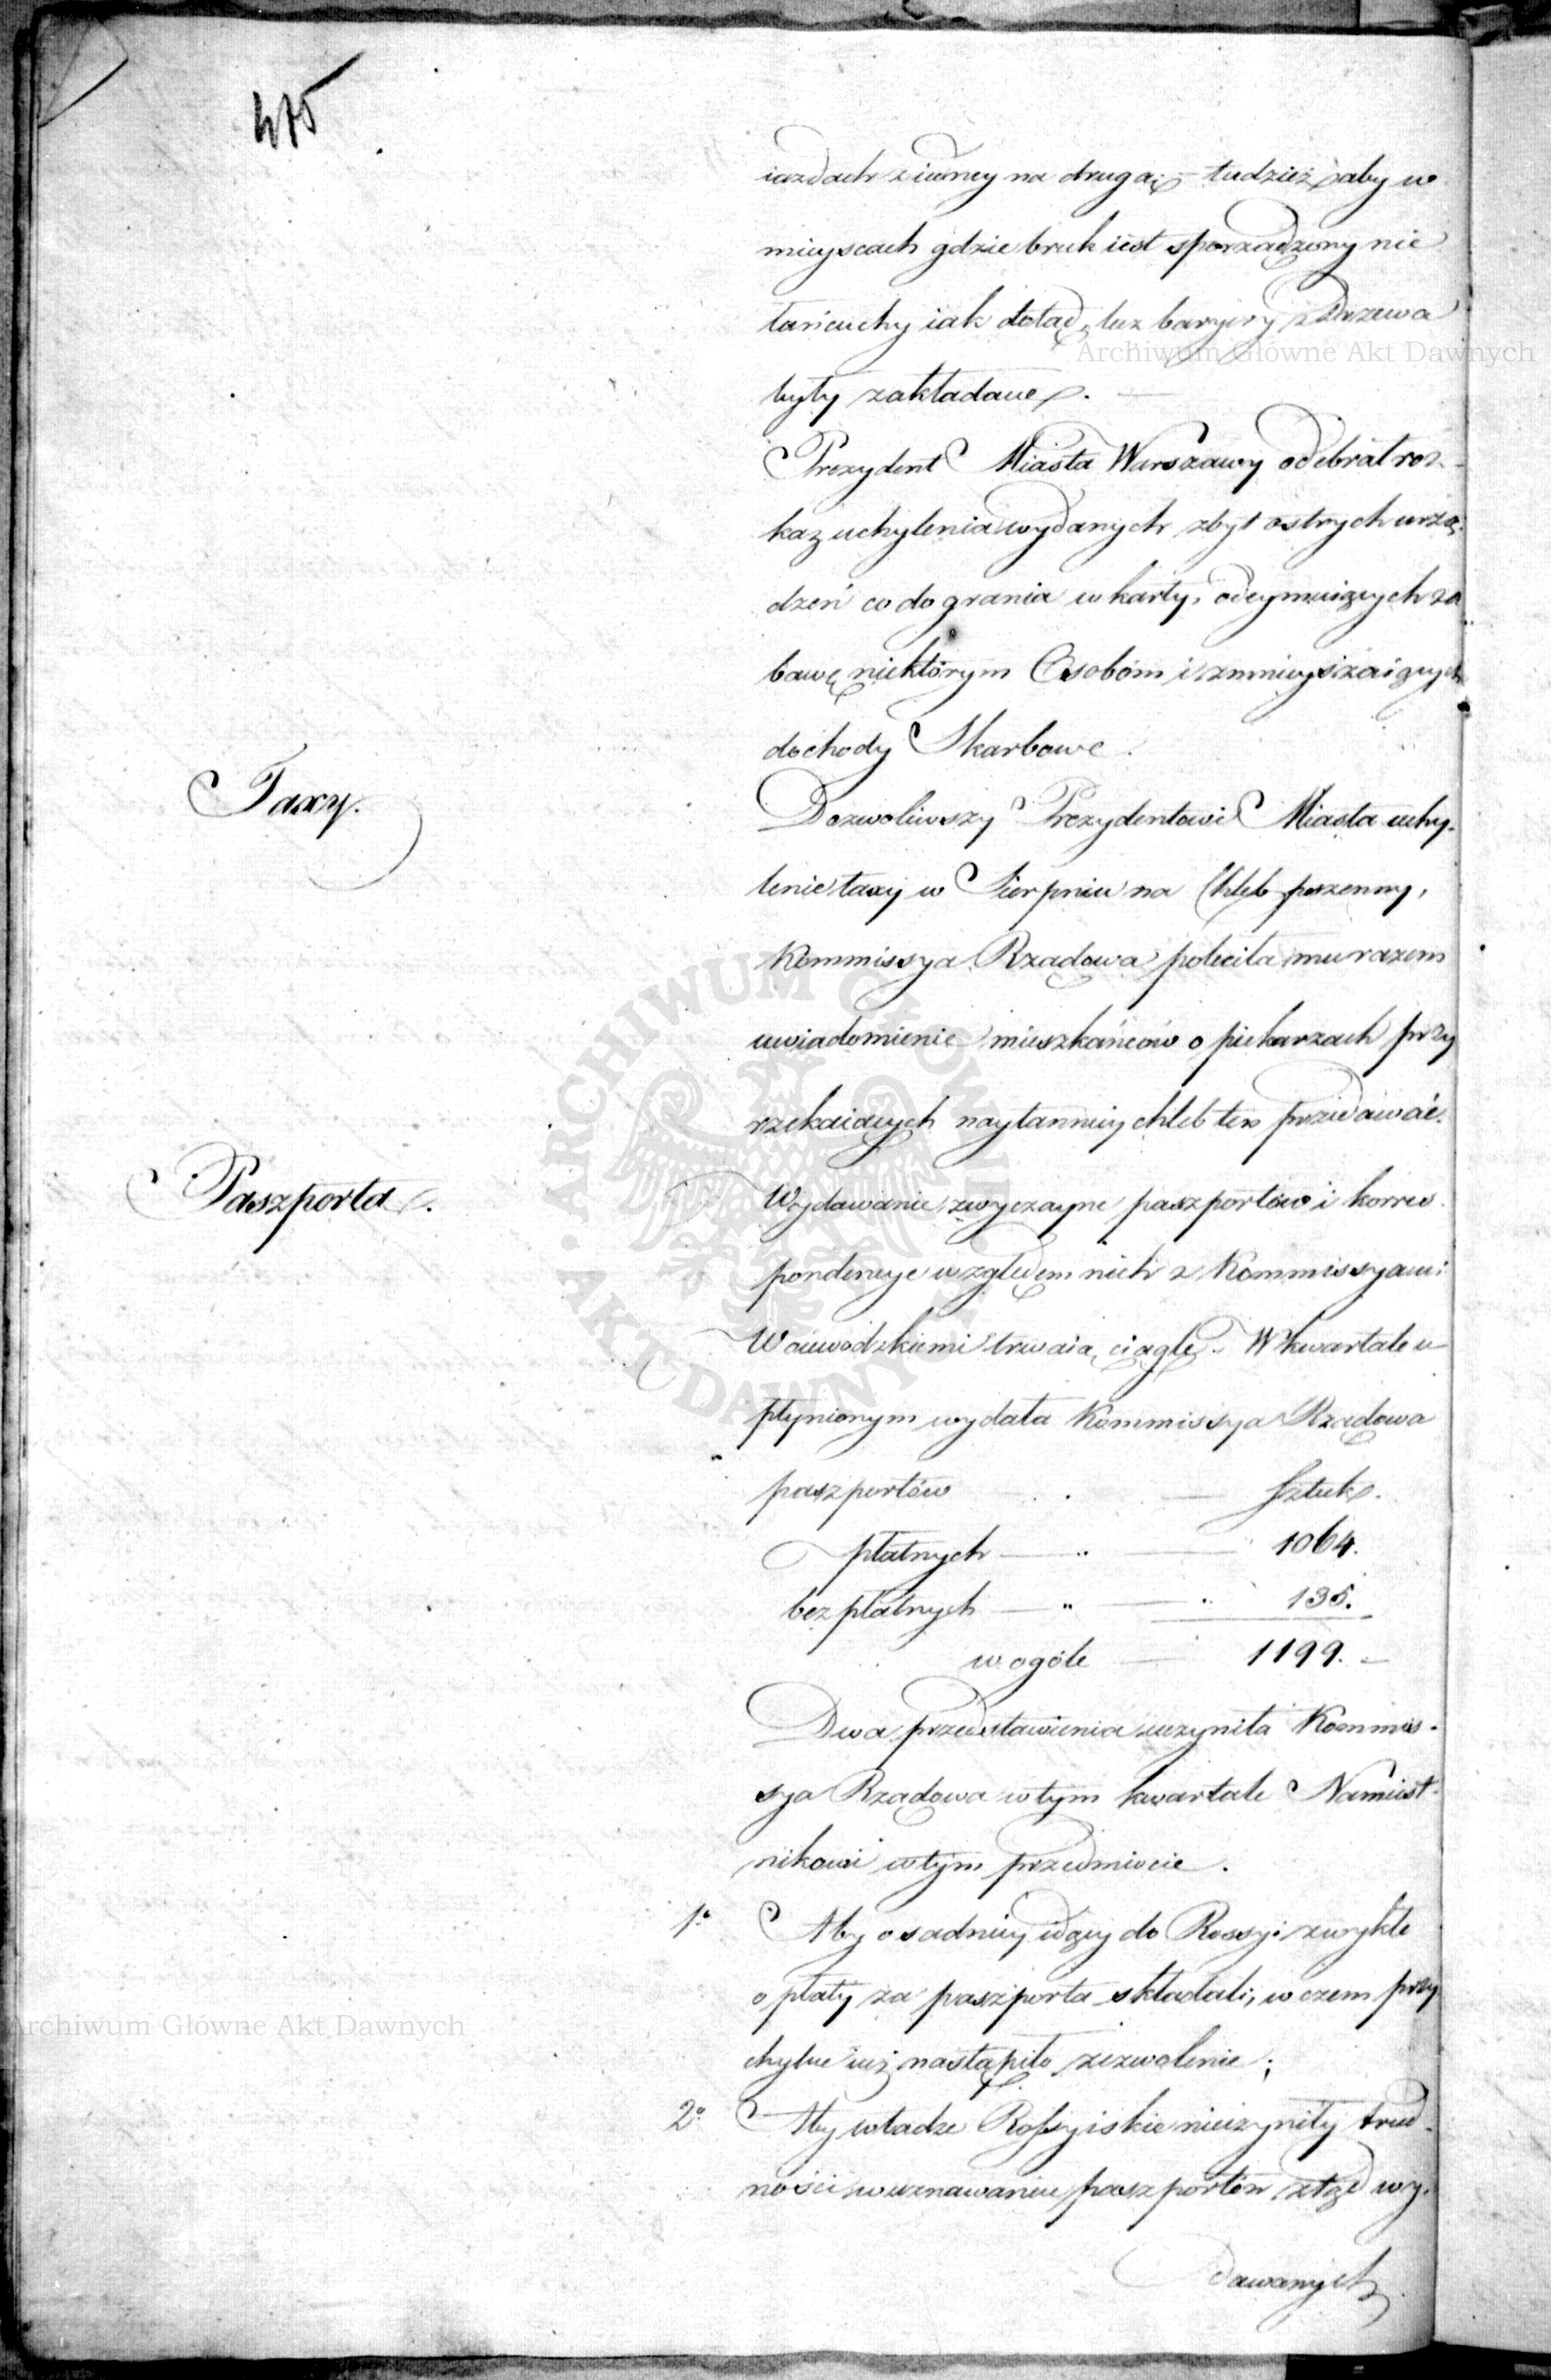 475
iazdach z iedney na drugą; tudzież aby w
mieyscach gdzie bruk iest sporządzony nie
łańcuchy iak dotąd, lecz baryery z drzewa
były zakładane. —
Prezydent Miasta Warszawy odebrał roz-
kaz uchylenia wydanych zbyt ostrych urzą-
dzeń co do grania w karty, odeymuiących za
bawę niektórym Osobom i zmnieyszaiących
dochody Skarbowe.
Taxy.
Dozwoliwszy Prezydentowi Miasta uchy-
lenie taxy w Sierpniu na Chleb pszenny,
Kommissya Rządowa poleciła mu razem
uwiadomienie mieszkańców o piekarzach przy
rzekaiących naytanniey chleb ten przedawać.
Paszporta.
Wydawanie zwyczayne paszportów i korres-
pondencye względem nich z Kommissyami
Woiewódzkiemi trwaią ciągle. W kwartale u-
płynionym wydała Kommissya Rządowa
paszportów — . — Sztuk.
płatnych — „ — 1064.
bezpłatnych — „ — „ 135.
w ogóle — 1199. —
Dwa przedstawienia uczyniła Kommis-
sya Rządowa w tym kwartale Namiest-
nikowi w tym przedmiocie.
1o Aby osadnicy idący do Rossyi zwykłe
opłaty za paszporta składali, w czem przy
chylne iuż nastąpiło zezwolenie;
2o Aby władze Rossyiskie nieczyniły trud-
ności w uznawaniu paszportów ztąd wy-
dawanych
Archiwum Główne Akt Dawnych
Archiwum Główne Akt Dawnych
ARCHIWUM GŁÓWNE · AKT DAWNYCH ·